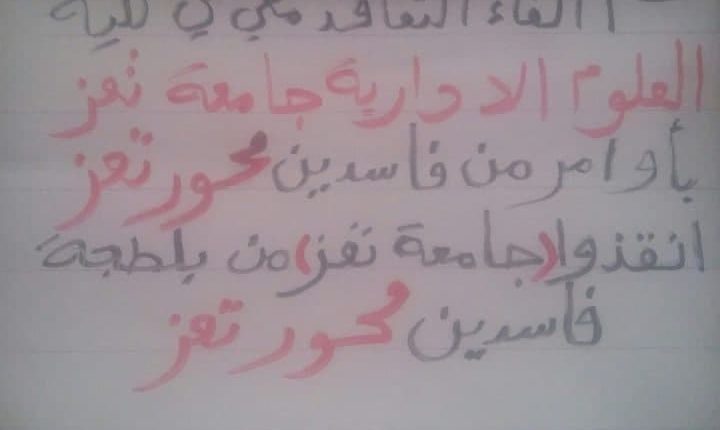 الغاء التعاقد معي في كلية
العلوم الادارية جامعة تعز
بأوامر من فاسدين محور تعز
انقذوا (جامعة تعز) من بلطجة
فاسدين محور تعز